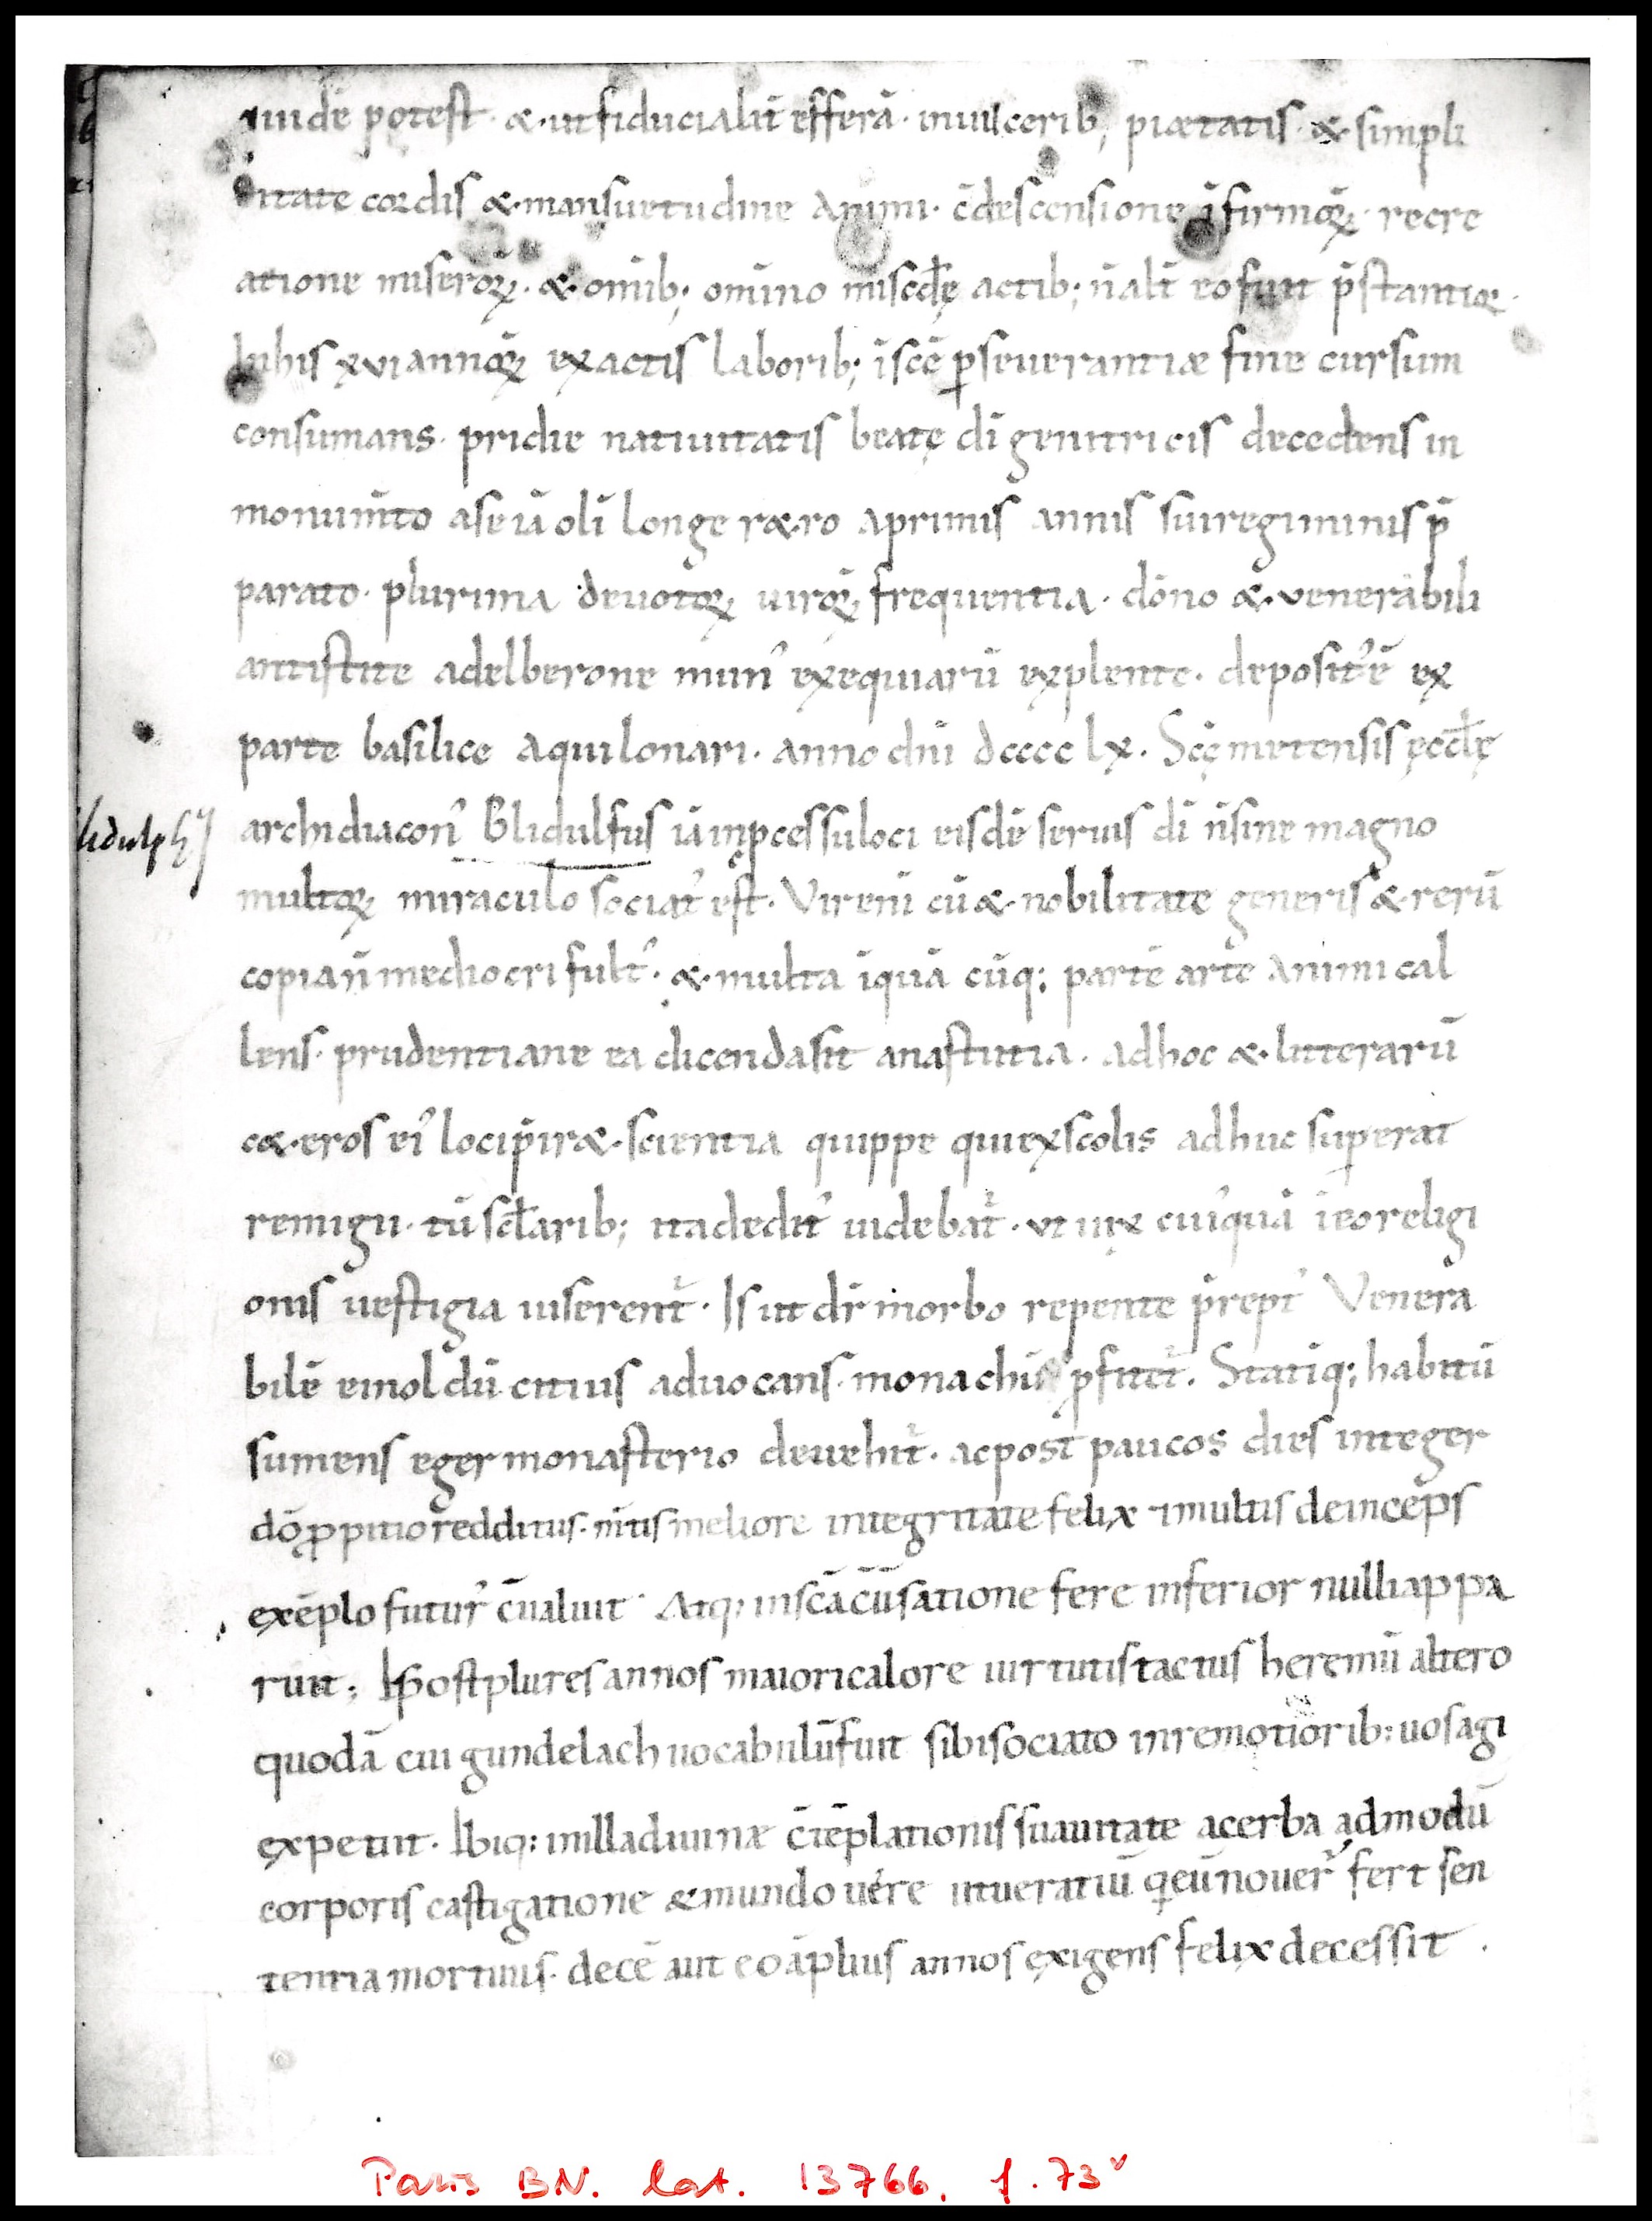 uidē potest · & · ut fiduciali᷒ efferā · inuisceribꝫ piætatis · & · simpli
citate cordis & · mansuetudine animi · c̄descensione īfirmoꝝ · recre
atione miseroꝝ · & · om̄ibꝫ om̄ino misc̄dię actibꝫ n̄ alt̄ eo fuit p̄stantior ·
In his xvi annoꝝ exactis laboribꝫ ī sc̄ē ꝑseuerantiæ fine cursum
consumans · pridie natiuitatis beatę dī genitricis decedens in
monum̄to a se iā olī longe r&ro a primis annis sui regiminis p̄
parato · plurima deuotoꝝ uiroꝝ frequentia · dōno & · venerabili
antistite adelberone mun᾽ exequiarū explente · deposit᾽ ē ex
parte basilice aquilonari · anno dn̄i dcccc lx · Sc̄ę metensis ęccl̄ę
archidiacon᾽ Blidulfus iā in ꝓcessu loci eisdē seruis dī n̄ sine magno
lidulph᾽
multoꝝ miraculo sociat᾽ est · Vir eni᷒ cū & · nobilitate generis & · rerū
copia n̄ mediocri fult᾽ · & · multa ī quā cūqꝫ partē arte animi cal
lens · prudentiane ea dicenda sit an astutia · ad hoc & · litterarū
c&·eros ei᾽ loci p̄ir&·scientia quippe qui ex scolis adhuc superat
remigii · tū sc̄l̄aribꝫ ita dedit᾽ uidebat᷑ · vt uix cui᾽quā ī eo religi
onis uestigia uiserent᷑ · Is ut dr̄ morbo repente p̄rept᾽ Venera
bilē einoldū citius aduocans · monachū ꝓfitet᷑ · Statiqꝫ habitū
sumens eger monasterio deuehit᷑ · ac post paucos dies integer
dō ꝓpitio redditus · m̄tis meliore integritate felix · multis deinceps
exēplo futur᾽ c̄ualuit · Atqꝫ in sc̄a c̄ūsatione fere inferior nulli appa
ruit ; Is post plures annos maiori calore uirtutis tactus heremū altero
quodā cui gundelach uocabulū fuit sibi sociato in remotioribꝫ uosagi
expetiit · Ibiqꝫ in illa diuinæ c̄tēplationis suauitate acerba admodū
corporis castigatione & mundo uere ut ueratiū q̄ eū nouer᷑ fert sen
tentia mortuus · decē aut eo āplius annos exigens felix decessit ·
Paris BN. lat. 13766, f. 73v